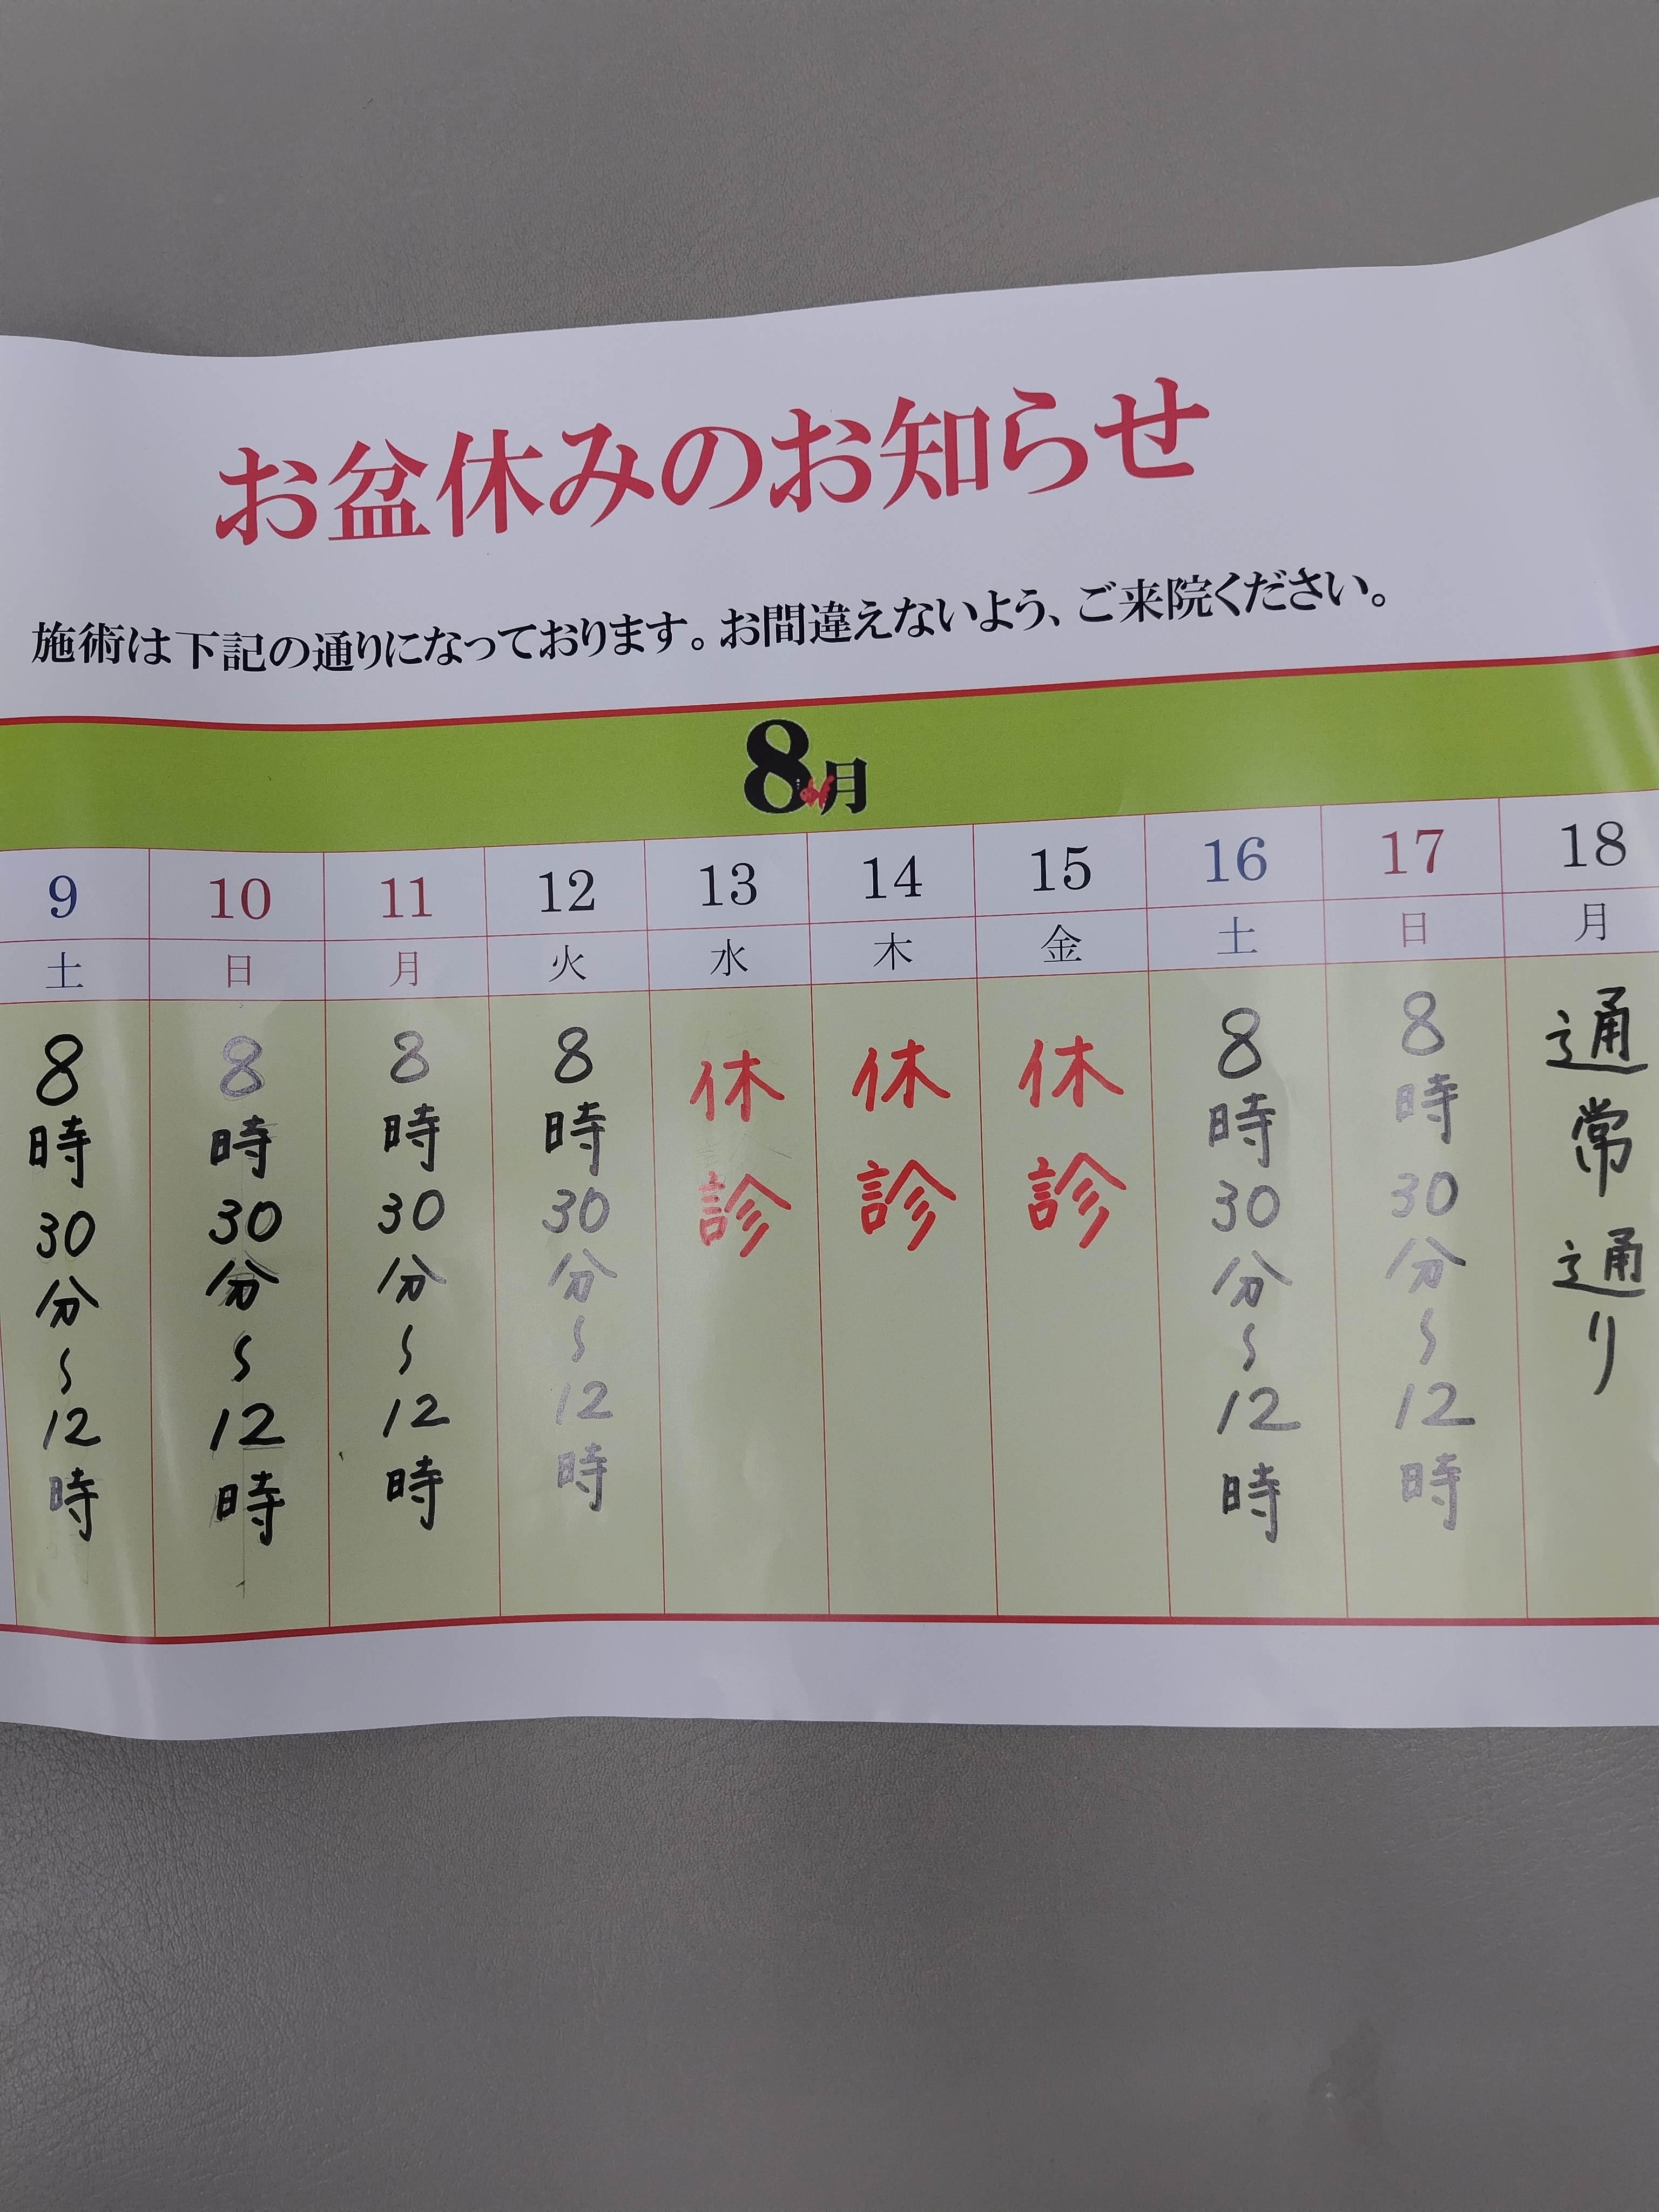 お盆休みのお知らせ
施術は下記の通りになっております。お間違えないよう、ご来院ください。
8月
9 10 11 12 13 14 15 16 17 18
土 日 月 火 水 木 金 土 日 月
8時30分〜12時
8時30分〜12時
8時30分〜12時
8時30分〜12時
休診
休診
休診
8時30分〜12時
8時30分〜12時
通常通り